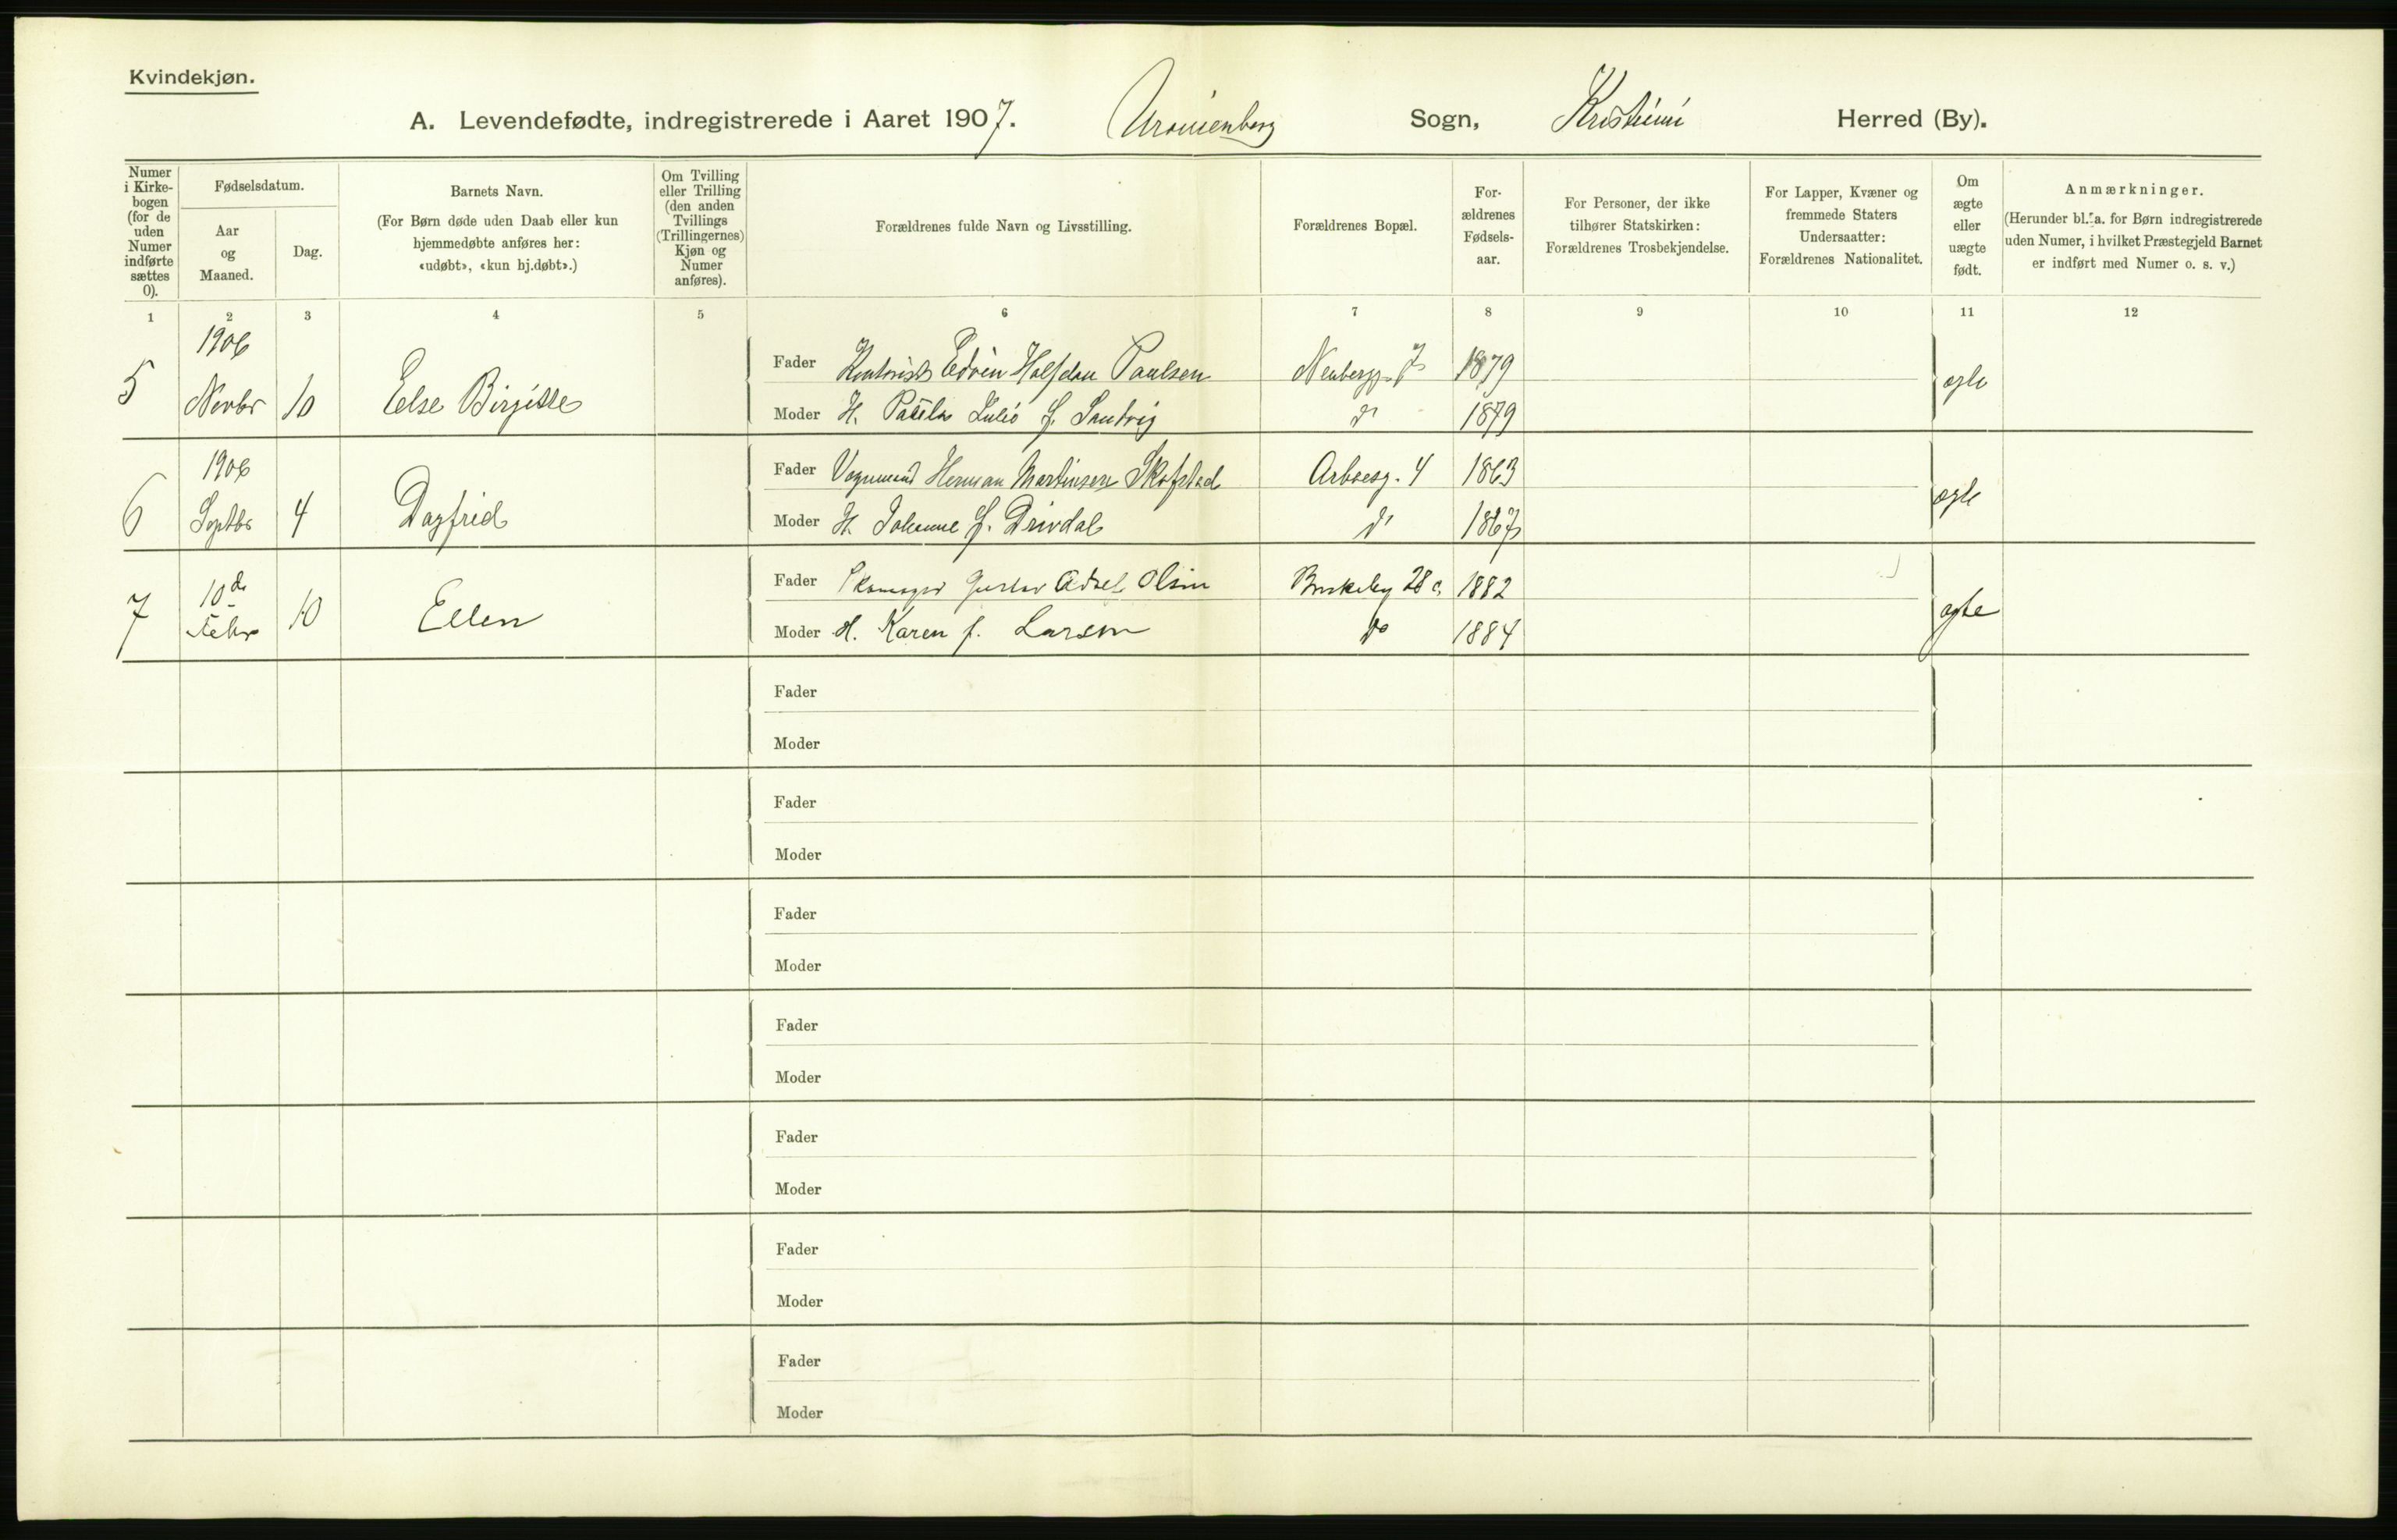 Kvindekjøn.
A. Levendefødte, indregistrerede i Aaret 1907. Uranienborg Sogn, Kristiania Herred (By).
Numer i Kirkebogen (for de uden Numer indførte sættes 0).
Fødselsdatum.
Aar og Maaned.
Dag.
Barnets Navn.
(For Børn døde uden Daab eller kun hjemmedøbte anføres her: «udøbt», «kun hj.døbt».)
Om Tvilling eller Trilling (den anden Tvillings (Trillingernes) Kjøn og Numer anføres).
Forældrenes fulde Navn og Livsstilling.
Forældrenes Bopæl.
Forældrenes Fødselsaar.
For Personer, der ikke tilhører Statskirken: Forældrenes Trosbekjendelse.
For Lapper, Kvæner og fremmede Staters Undersaatter: Forældrenes Nationalitet.
Om ægte eller uægte født.
Anmærkninger.
(Herunder bl. a. for Børn indregistrerede uden Numer, i hvilket Præstegjeld Barnet er indført med Numer o. s. v.)
1 2 3 4 5 6 7 8 9 10 11 12
5 1906 Novbr 10 Else Birgitte Fader Kontorist Edvin Halfdan Paulsen Neubergg. 7 1879 ægte
Moder H. Paula Julie f. Sandvig do 1879
6 1906 Septbr 4 Dagfrid Fader Vognmand Herman Martinsen Skofsted Arboesg. 4 1863 ægte
Moder H. Johanne f. Drivdal do 1867
7 10de Febr 10 Ellen Fader Skomager Gustav Adolf Olsen Briskeby 28 c. 1882 ægte
Moder H. Karen f. Larsen do 1884
Fader
Moder
Fader
Moder
Fader
Moder
Fader
Moder
Fader
Moder
Fader
Moder
Fader
Moder